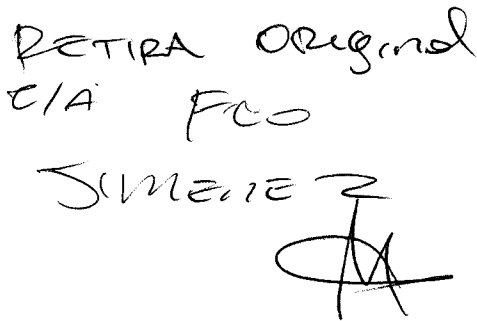 RETIRA Original
C/A FCO
JIMENEZ